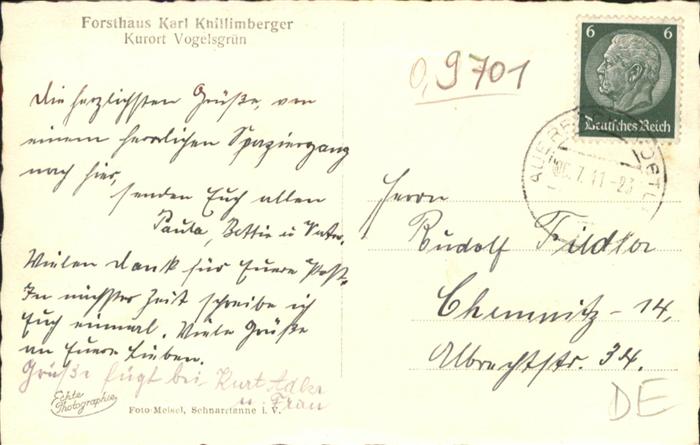 Forsthaus Karl Knillimberger
Kurort Vogelsgrün
0,9701
6 6
Deutsches Reich
Die herzlichsten Grüße, von
einem herrlichen Spaziergang
nach hier,
senden Euch allen
Paula, Bettie u Vater.
Vielen Dank für Euere Post.
In nächster Zeit schreibe ich
Euch einmal. Viele Grüße
an Euere Lieben.
Grüße fügt bei Kurt Adler
u. Frau
Herrn
Rudolf Fiedler
Chemnitz - 14.
Albrechtstr. 34.
DE
Echte
Photographie
Foto-Meisel, Schnarrtanne i. V.